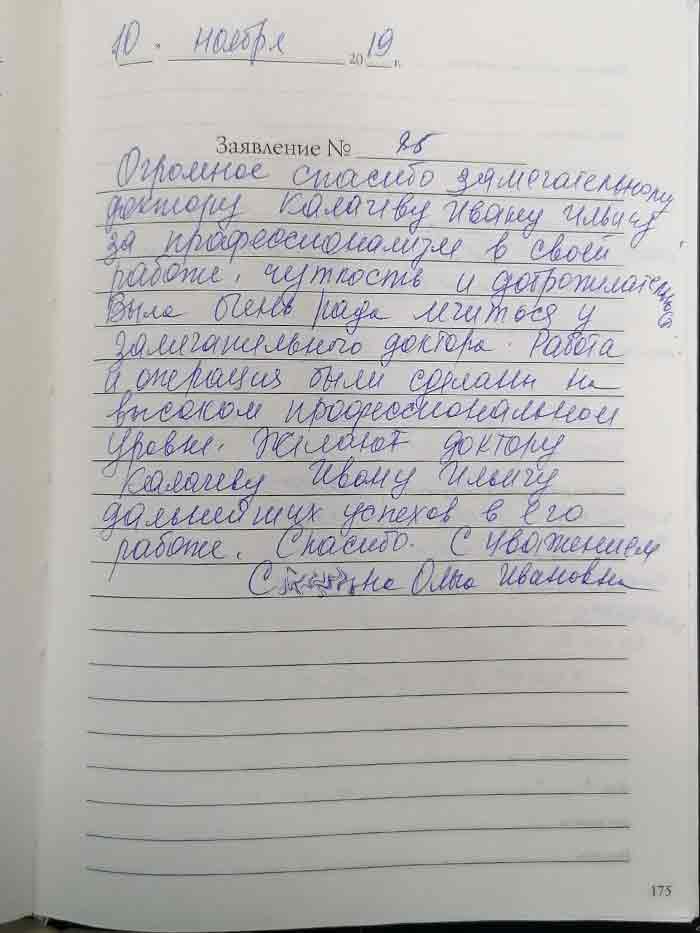 10. ноября 2019 г.
Заявление № 85
Огромное спасибо замечательному
доктору Калачеву Ивану Ильичу
за профессионализм в своей
работе, чуткость и доброжелательность
Была очень рада лечиться у
замечательного доктора. Работа
и операция были сделаны на
высоком профессиональном
уровне. Желают доктору
Калачеву Ивану Ильичу
дальнейших успехов в его
работе. Спасибо. С уважением
Ольга Ивановна
175